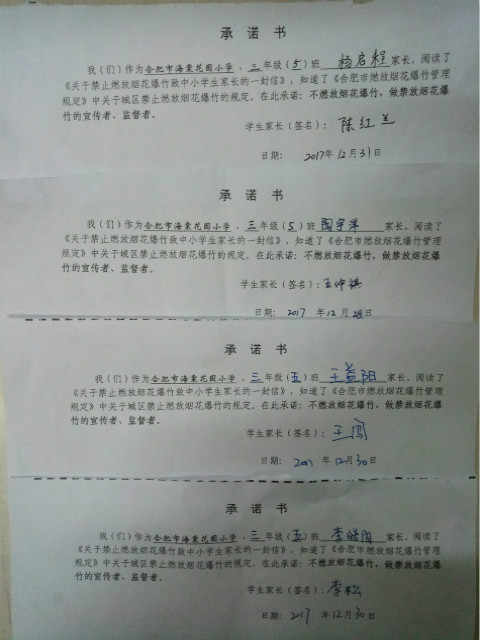 承 诺 书
我（们）作为合肥市海棠花园小学，三年级（5）班 杨启程 家长，阅读了
《关于禁止燃放烟花爆竹致中小学生家长的一封信》，知道了《合肥市燃放烟花爆竹管理
规定》中关于城区禁止燃放烟花爆竹的规定。在此承诺：不燃放烟花爆竹，做禁放烟花爆
竹的宣传者、监督者。
学生家长（签名）：陈红兰
日期： 2017年12月31日
承 诺 书
我（们）作为合肥市海棠花园小学，三年级（5）班 陶宇洋 家长，阅读了
《关于禁止燃放烟花爆竹致中小学生家长的一封信》，知道了《合肥市燃放烟花爆竹管理
规定》中关于城区禁止燃放烟花爆竹的规定。在此承诺：不燃放烟花爆竹，做禁放烟花爆
竹的宣传者、监督者。
学生家长（签名）：王仲祺
日期： 2017 年12月28日
承 诺 书
我（们）作为合肥市海棠花园小学，三年级（五）班 王益阳 家长，阅读了
《关于禁止燃放烟花爆竹致中小学生家长的一封信》，知道了《合肥市燃放烟花爆竹管理
规定》中关于城区禁止燃放烟花爆竹的规定。在此承诺：不燃放烟花爆竹，做禁放烟花爆
竹的宣传者、监督者。
学生家长（签名）：王闯
日期： 2017 年12月30日
承 诺 书
我（们）作为合肥市海棠花园小学，三年级（五）班 李 家长，阅读了
《关于禁止燃放烟花爆竹致中小学生家长的一封信》，知道了《合肥市燃放烟花爆竹管理
规定》中关于城区禁止燃放烟花爆竹的规定。在此承诺：不燃放烟花爆竹，做禁放烟花爆
竹的宣传者、监督者。
学生家长（签名）：李松
日期： 2017 年12月30日